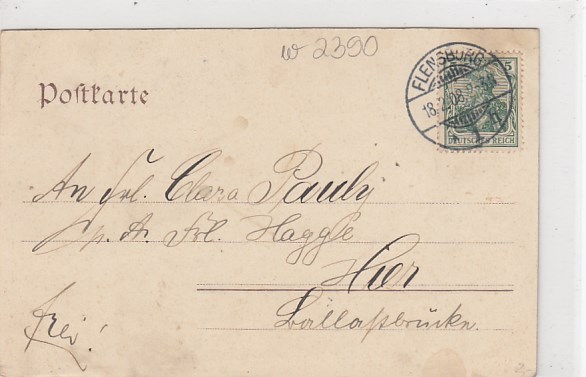 w 2390
Postkarte
FLENSBURG
18.2.08.
5
DEUTSCHES REICH
An Frl. Clara Pauly
p. A. Frl. Haggle
Hier
Ballastbrücke.
frei!